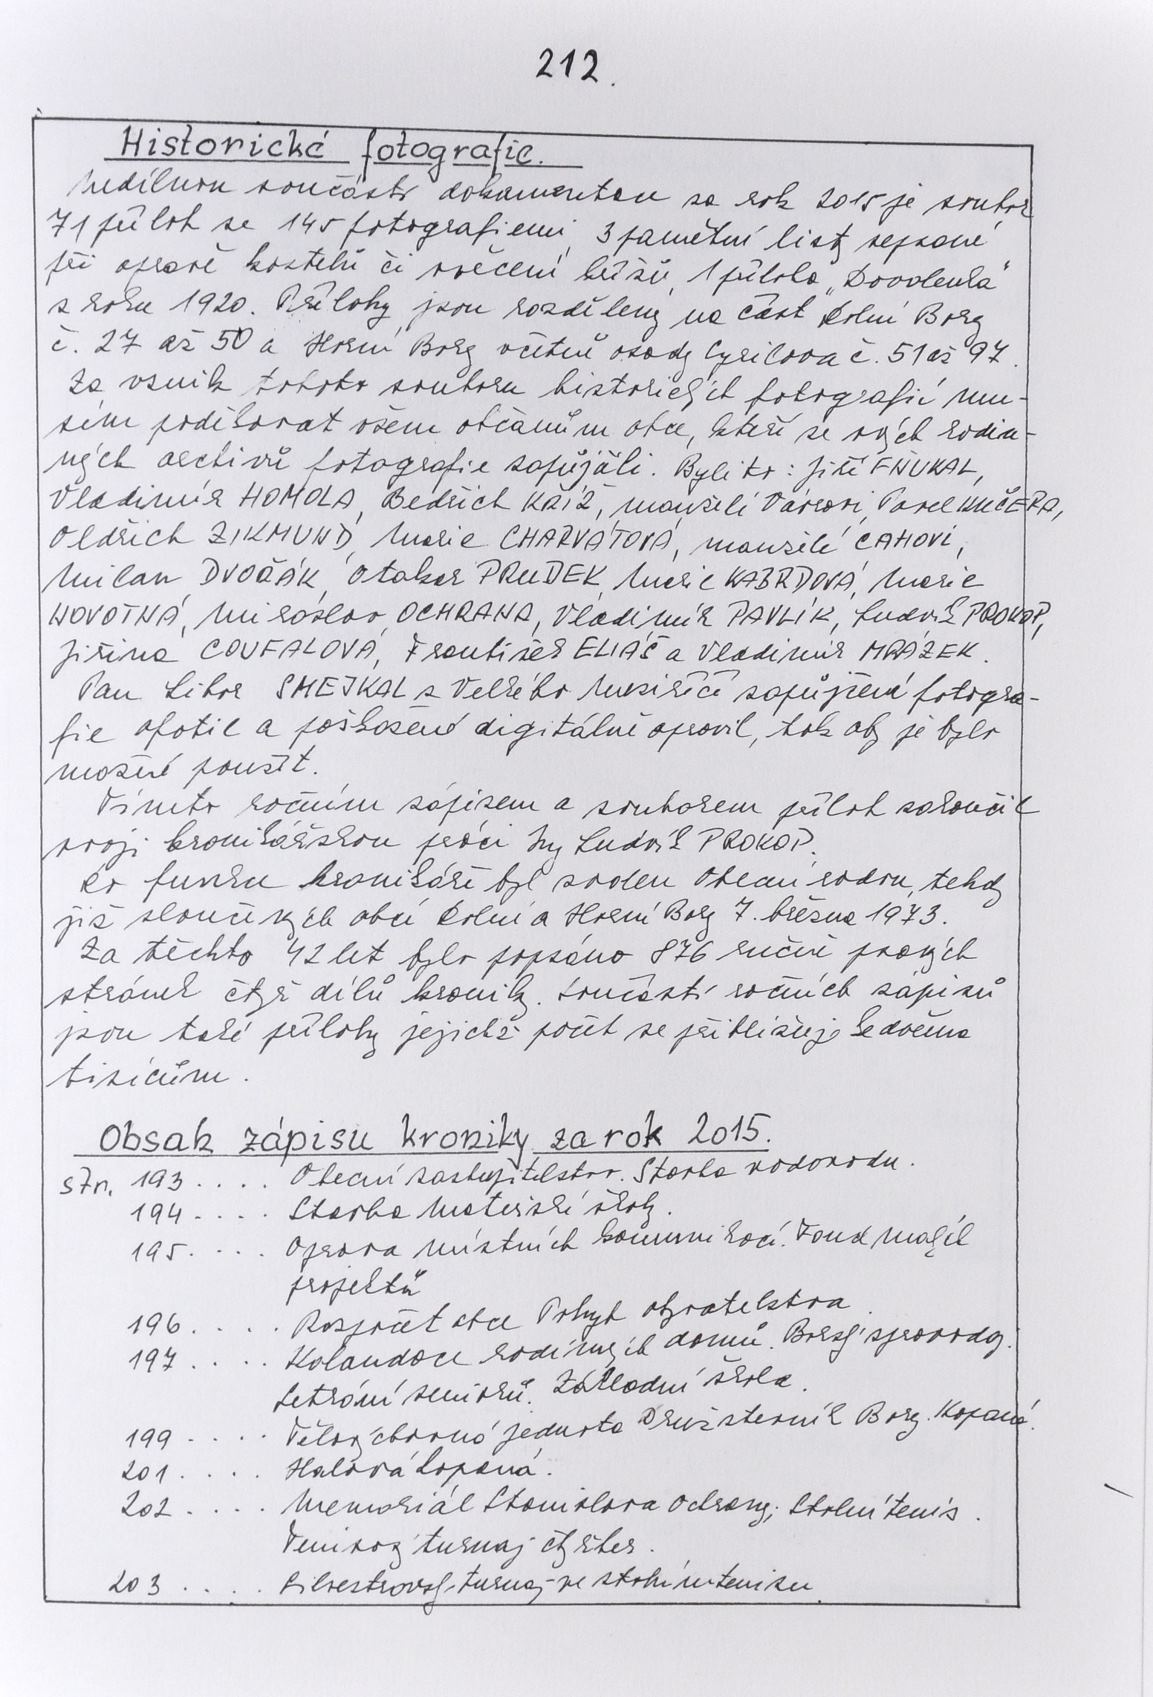 212.
Historické fotografie.
Nedílnou součástí dokumentace za rok 2015 je soubor
71 příloh se 145 fotografiemi, 3 pamětní listy sepsané
při opravě kostelů či svěcení kříže, 1 příloha „Dovolenka"
z roku 1920. Přílohy jsou rozděleny na část Dolní Bory
č. 27 až 50 a Horní Bory včetně osady Cyrilova č. 51 až 97.
Za vznik tohoto souboru historických fotografií mu-
sím poděkovat všem občanům obce, kteří se svých rodin-
ných archivů fotografie zapůjčili. Byli to: Jiří FŇUKAL,
Vladimír HOMOLA, Bedřich KŘÍŽ, manželé Vávrovi, Pavel KUČERA,
Oldřich ZIKMUND, Marie CHARVÁTOVÁ, manželé CAHOVI,
Milan DVOŘÁK, Otakar PRUDEK, Marie KABRDOVÁ, Marie
NOVOTNÁ, Miroslav OCHRANA, Vladimír PAVLÍK, Ludvík PROKOP,
Jiřina COUFALOVÁ, František ELIÁŠ a Vladimír MRÁZEK.
Pan Libor SMEJKAL z Velkého Meziříčí zapůjčené fotogra-
fie ofotil a poškozené digitálně opravil, tak aby je bylo
možné použít.
Tímto ročním zápisem a souborem příloh zakončil
svoji kronikářskou práci Ing Ludvík PROKOP.
Do funkce kronikáře byl zvolen Obecní radou, tehdy
již sloučených obcí Dolní a Horní Bory 7. března 1973.
Za těchto 42 let bylo popsáno 876 ručně psaných
stránek čtyř dílů kroniky. Součástí ročních zápisů
jsou také přílohy jejichž počet se přibližuje k dvěma
tisícům.
Obsah zápisu kroniky za rok 2015.
str. 193 .... Obecní zastupitelstvo. Stavba vodovodu.
194 .... Stavba Mateřské školy.
195 .... Oprava místních komunikací. Fond malých
projektů
196 .... Rozpočet obce Pohyb obyvatelstva.
197 .... Kolaudace rodinných domů. Borský zpravodaj.
Setkání seniorů. Základní škola.
199 .... Tělovýchovná jednota Družstevník Bory. Kopaná.
201 .... Halová kopaná.
202 .... Memoriál Stanislava Ochrany; Stolní tenis.
Tenisový turnaj čtyřher.
203 .... Silvestrovský turnaj ve stolním tenisu